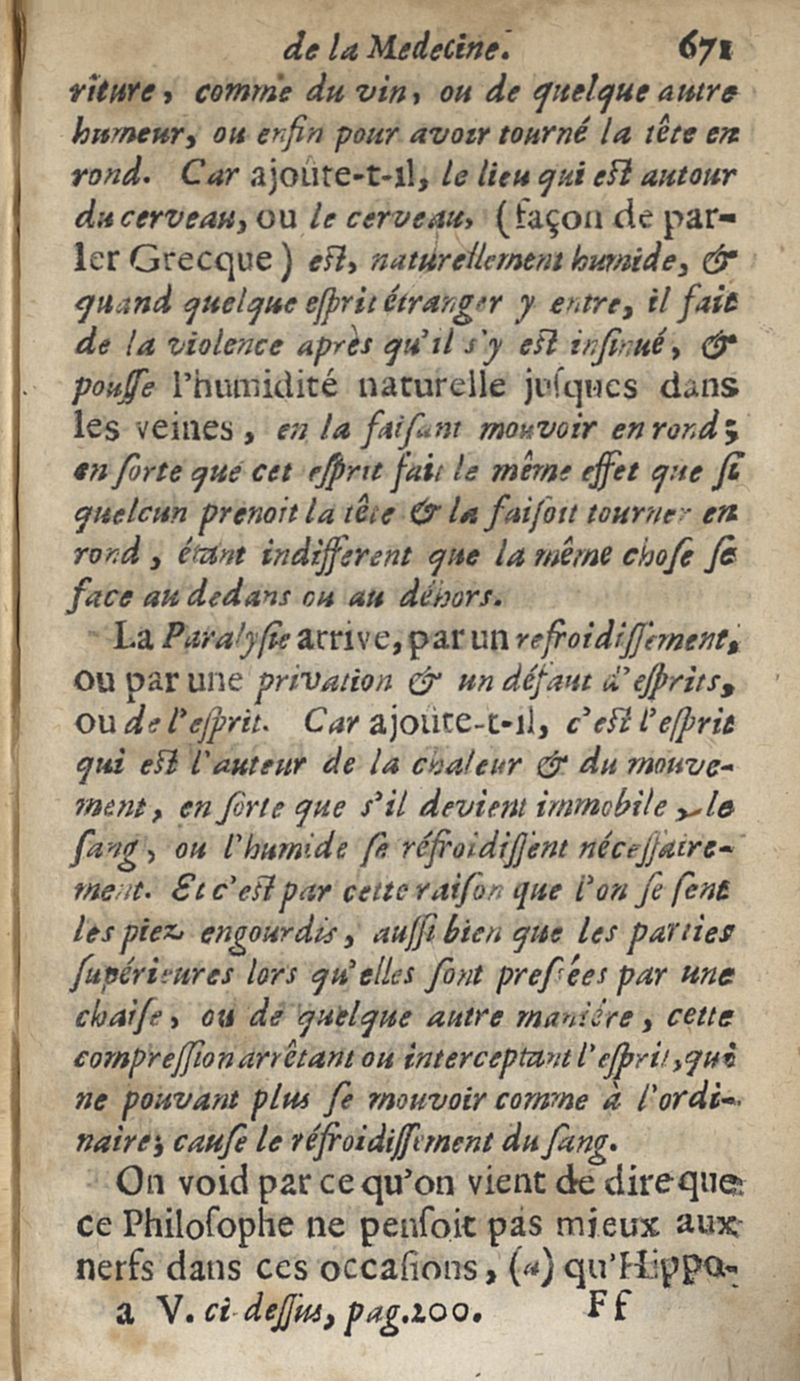 de la Medecine. 671
riture, comme du vin, ou de quelque autre
humeur, ou enfin pour avoir tourné la tête en
rond. Car ajoûte-t-il, le lieu qui eſt autour
du cerveau, ou le cerveau, (façon de par-
ler Grecque) eſt, naturellement humide, &
quand quelque eſprit étranger y entre, il fait
de la violence après qu'il s'y eſt inſinué, &
pouſſe l'humidité naturelle juſques dans
les veines, en la faiſant mouvoir en rond;
en ſorte que cet eſprit fait le même effet que ſi
quelcun prenoit la tête & la faiſoit tourner en
rond, étant indifferent que la même choſe ſe
face au dedans ou au déhors.
La Paralyſie arrive, par un refroidiſſement,
ou par une privation & un défaut d'eſprits,
ou de l'eſprit. Car ajoûte-t-il, c'eſt l'eſprit
qui eſt l'auteur de la chaleur & du mouve-
ment, en ſorte que s'il devient immobile, le
ſang, ou l'humide ſe réfroidiſſent néceſſaire-
ment. Et c'eſt par cette raiſon que l'on ſe ſent
les piez engourdis, auſſi bien que les parties
ſupérieures lors qu'elles ſont preſſées par une
chaiſe, ou de quelque autre maniére, cette
compreſſion arrêtant ou interceptant l'eſprit, qui
ne pouvant plus ſe mouvoir comme à l'ordi-
naire, cauſe le réfroidiſſement du ſang.
On void par ce qu'on vient de dire que
ce Philoſophe ne penſoit pas mieux aux
nerfs dans ces occaſions, (a) qu'Hippo-
a V. ci deſſus, pag. 200. Ff